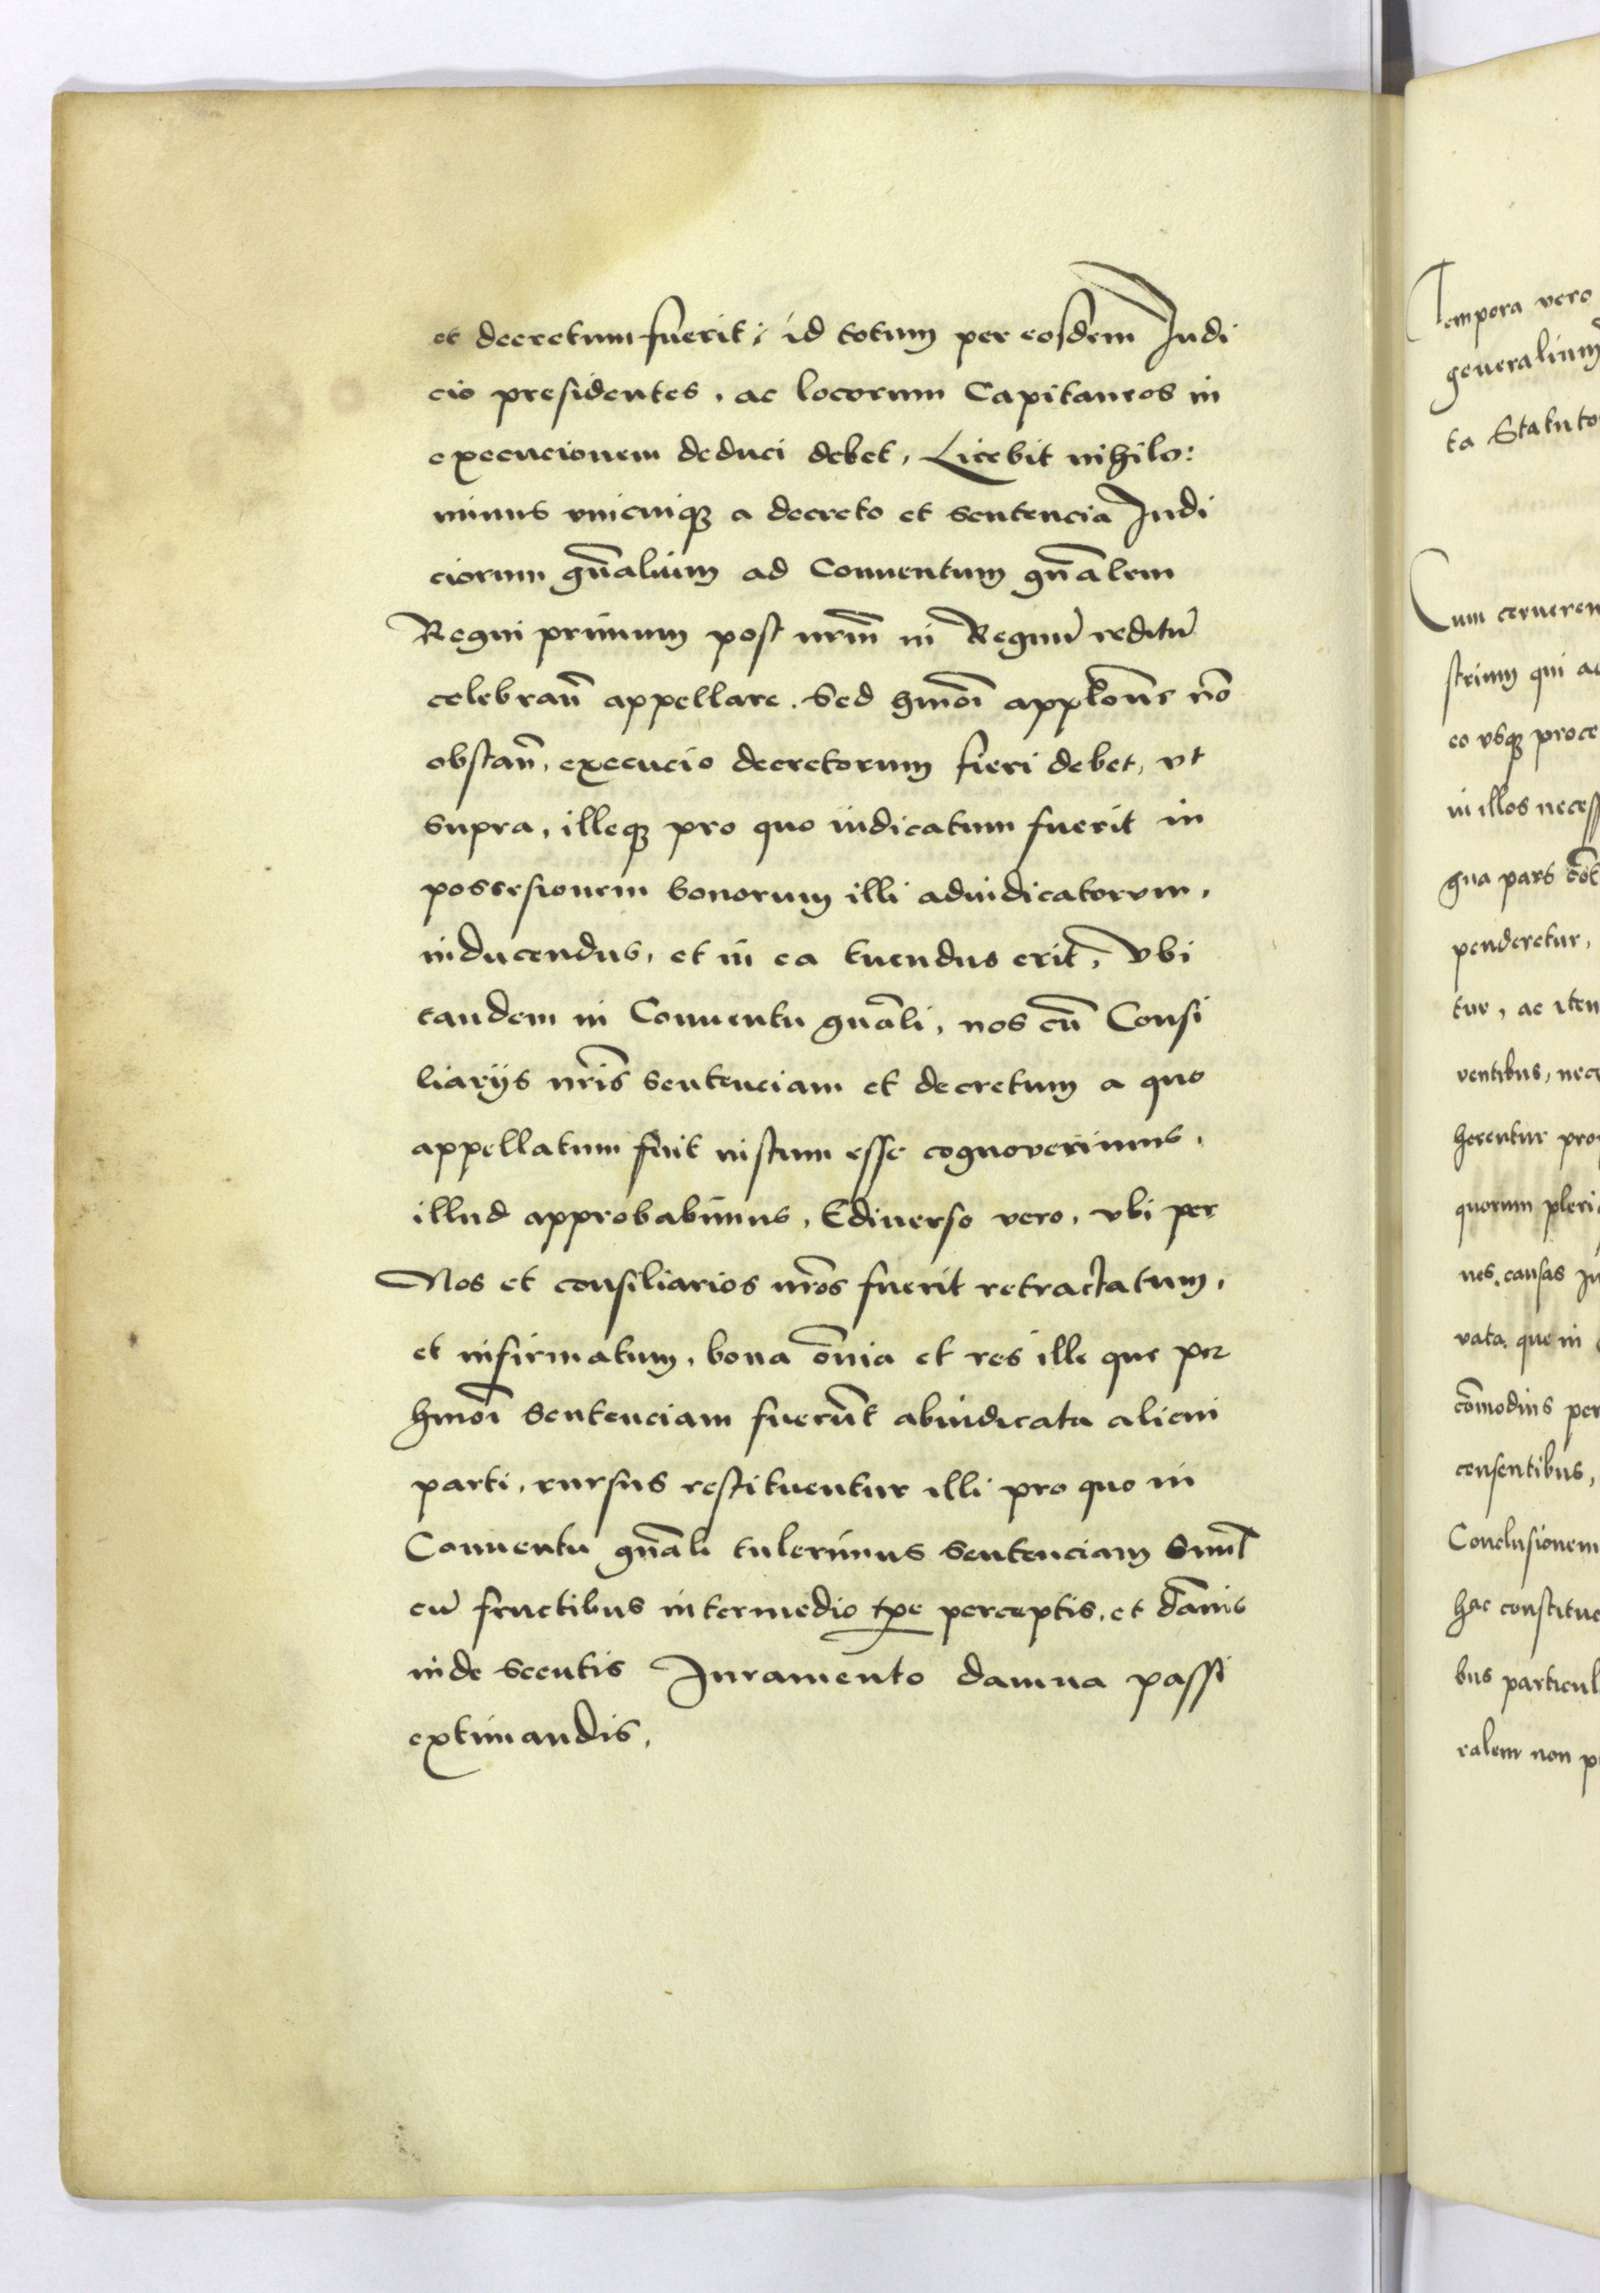 et decretum fuerit; id totum per eosdem Judi
cio presidentes, ac locorum Capitaneos in
execucionem deduci debet, Licebit nihilo:
minus vnicuiqꝫ a decreto et sentencia Judi
ciorum gn̄alium ad Conuentum gn̄alem
Regni primum post nrm̄ in Regnū reditū
celebran̄ appellare. Sed hmōi applōns nō
obstan̄, execucio decretorum fieri debet, vt
supra, illeqꝫ pro quo iudicatum fuerit in
possesionem bonorum illi adiudicatorum,
inducendus, et in ea tuendus erit, Vbi
tandem in Conuentu gnāli, nos cū Consi
liarijs nrīs sentenciam et decretum a quo
appellatum fuit iustum esse cognoverimus,
illud approbabimus, Ediuerso vero, vbi per
Nos et consiliarios nr̄os fuerit retractatum,
et infirmatum, bona ōnia et res ille que per
hmōi sentenciam fuerūt abiudicata alicui
parti, rursus restituentur illi pro quo in
Conuentu gn̄ali tulerimus sentenciam Simł
cū fructibus intermedio tp̱e perceptis, et dānis
inde secutis Juramento damna passi
extimandis,
Tempora vero
generalium
ta Statuto
Cum cerneren
strium qui ac
eo vsqꝫ proce
in illos necess
gna pars
penderetur,
tur, ac iten
ventibus, nec
herentur prop
quorum pleri
nes, causas Ju
vata, que in
cōmodius per
censentibus,
Conclusionem
hac constitue
bus particul
ralem non p